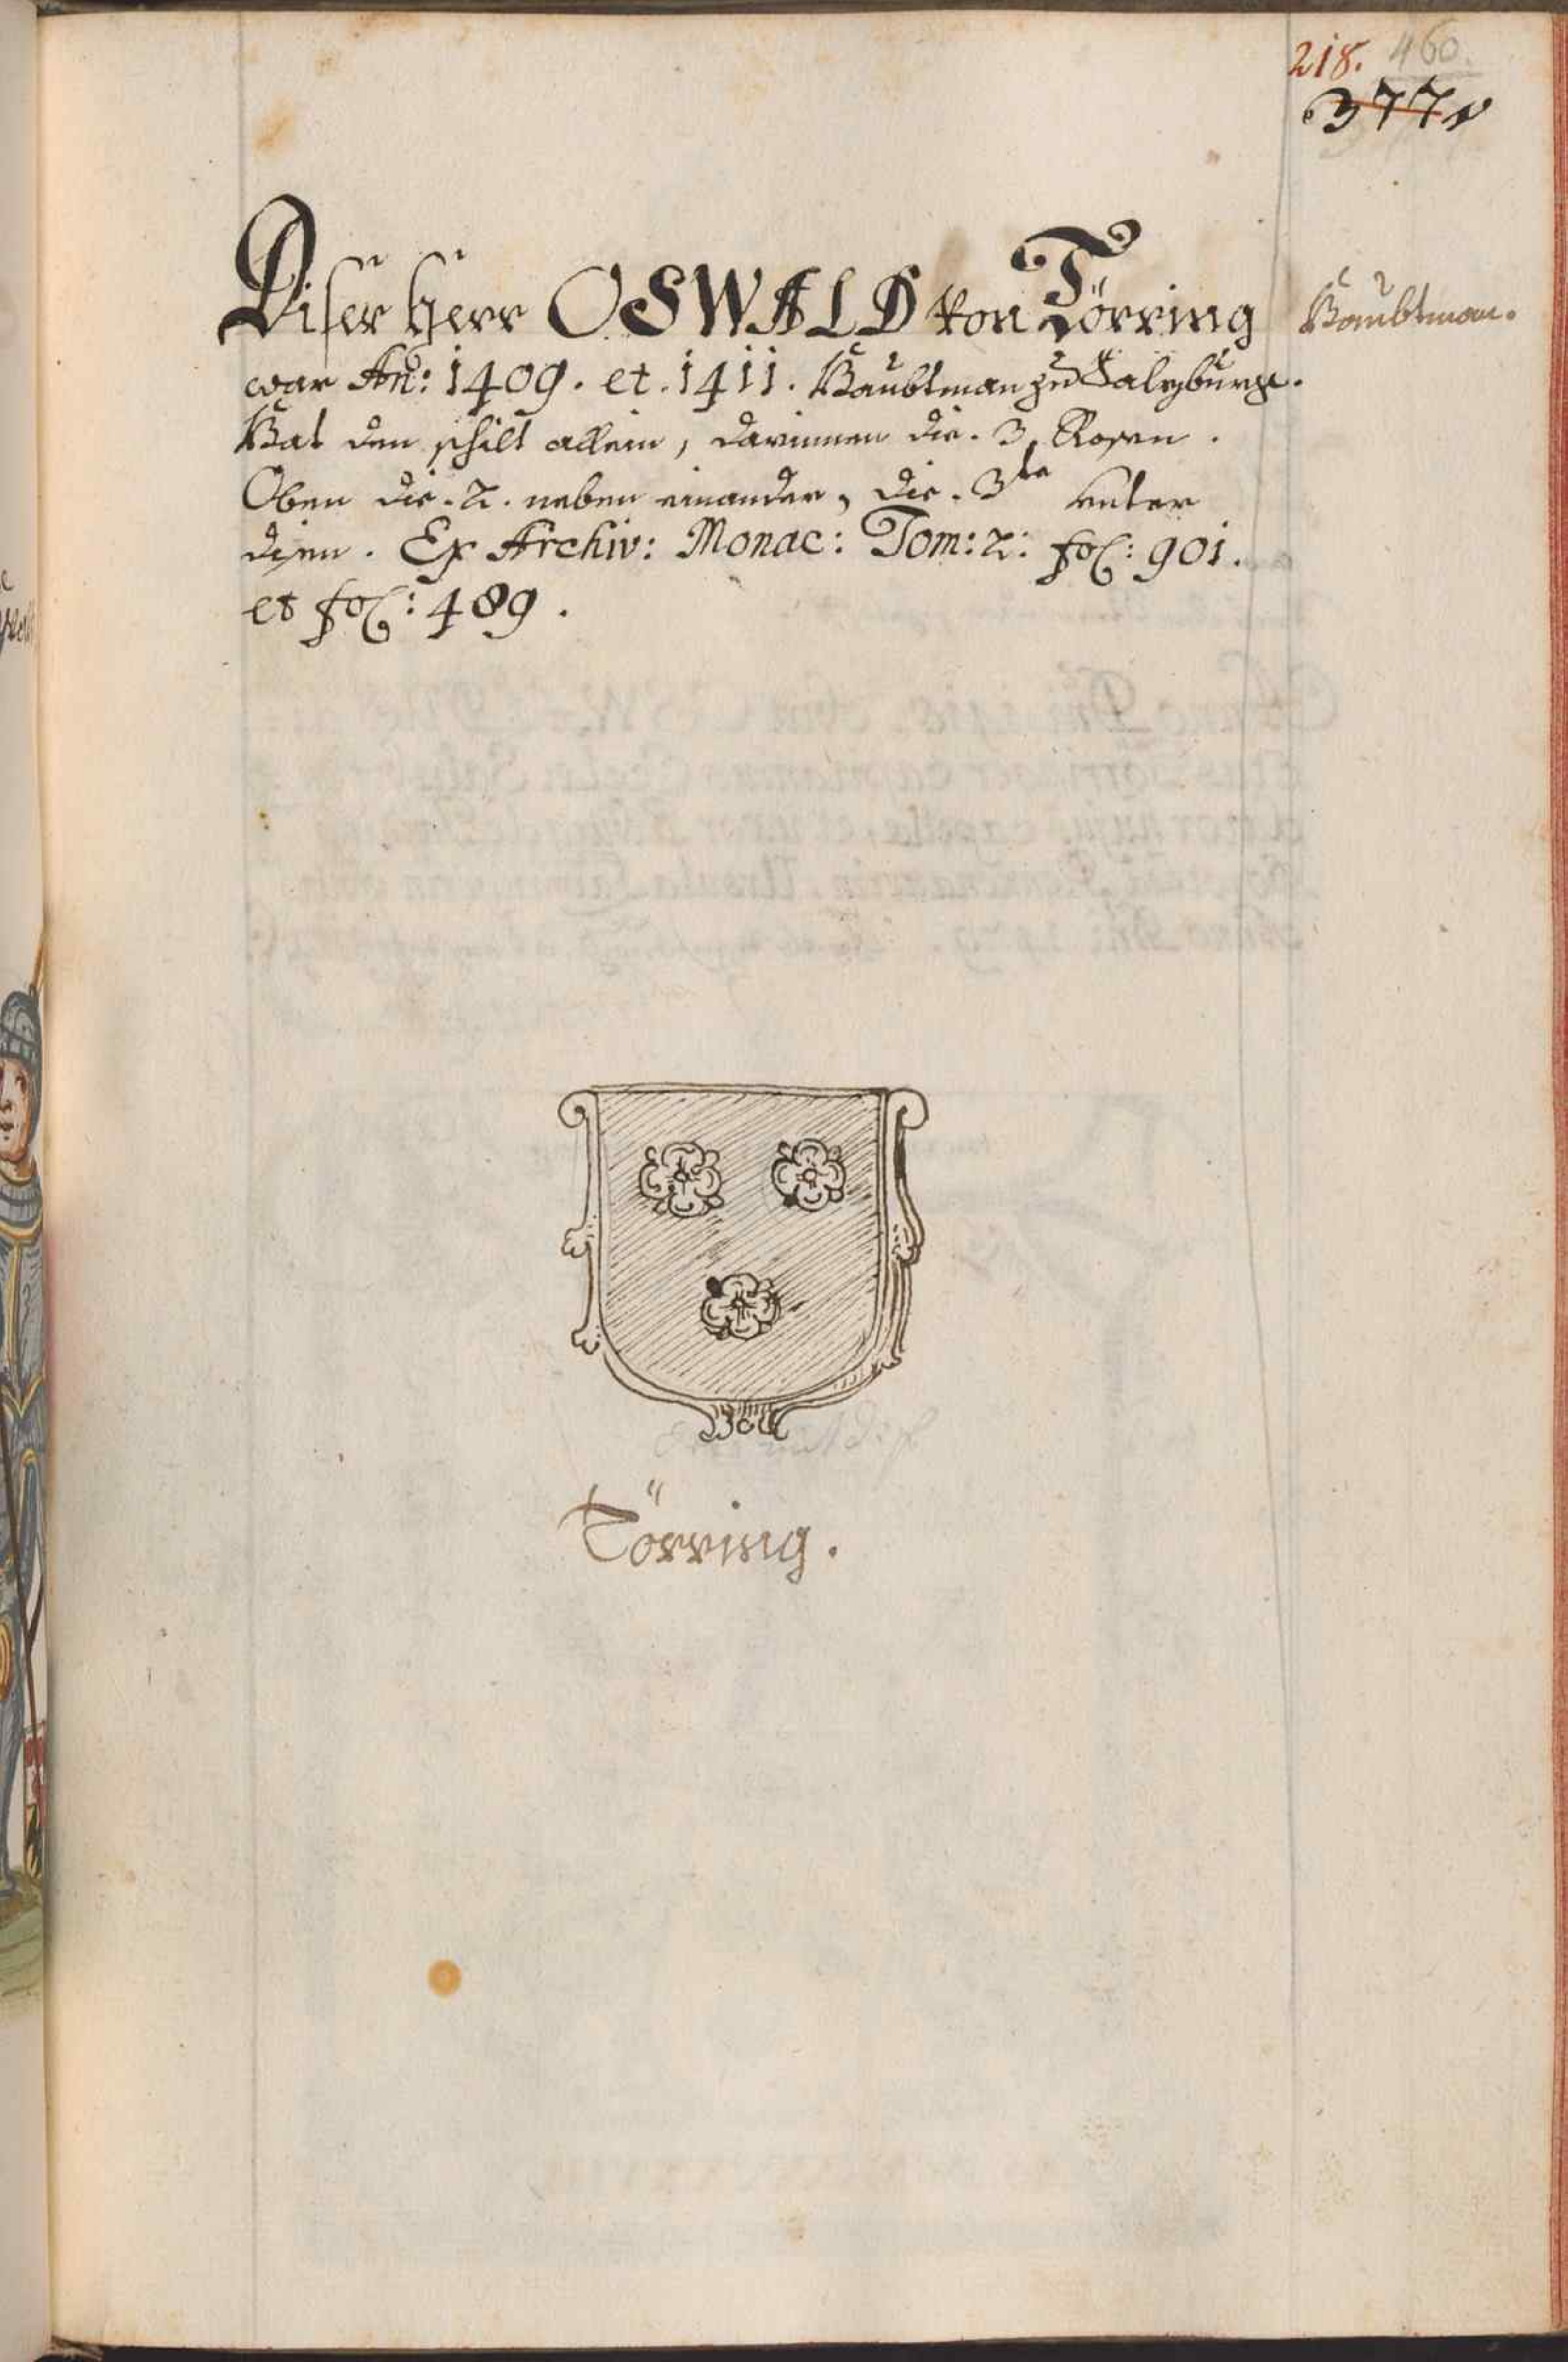 218. 460.
377
Diser Herr OSWALD von Törring
Haubtman.
war Año: 1409. et. 1411. Haubtman zu Salzburg.
Hat den schilt allein, darinnen die. 3. Rosen.
Oben die. 2. neben einander, die. 3te vnter
disen. Ex Archiv: Monac: Tom: 2: fol: 901.
et fol: 489.
Törring.